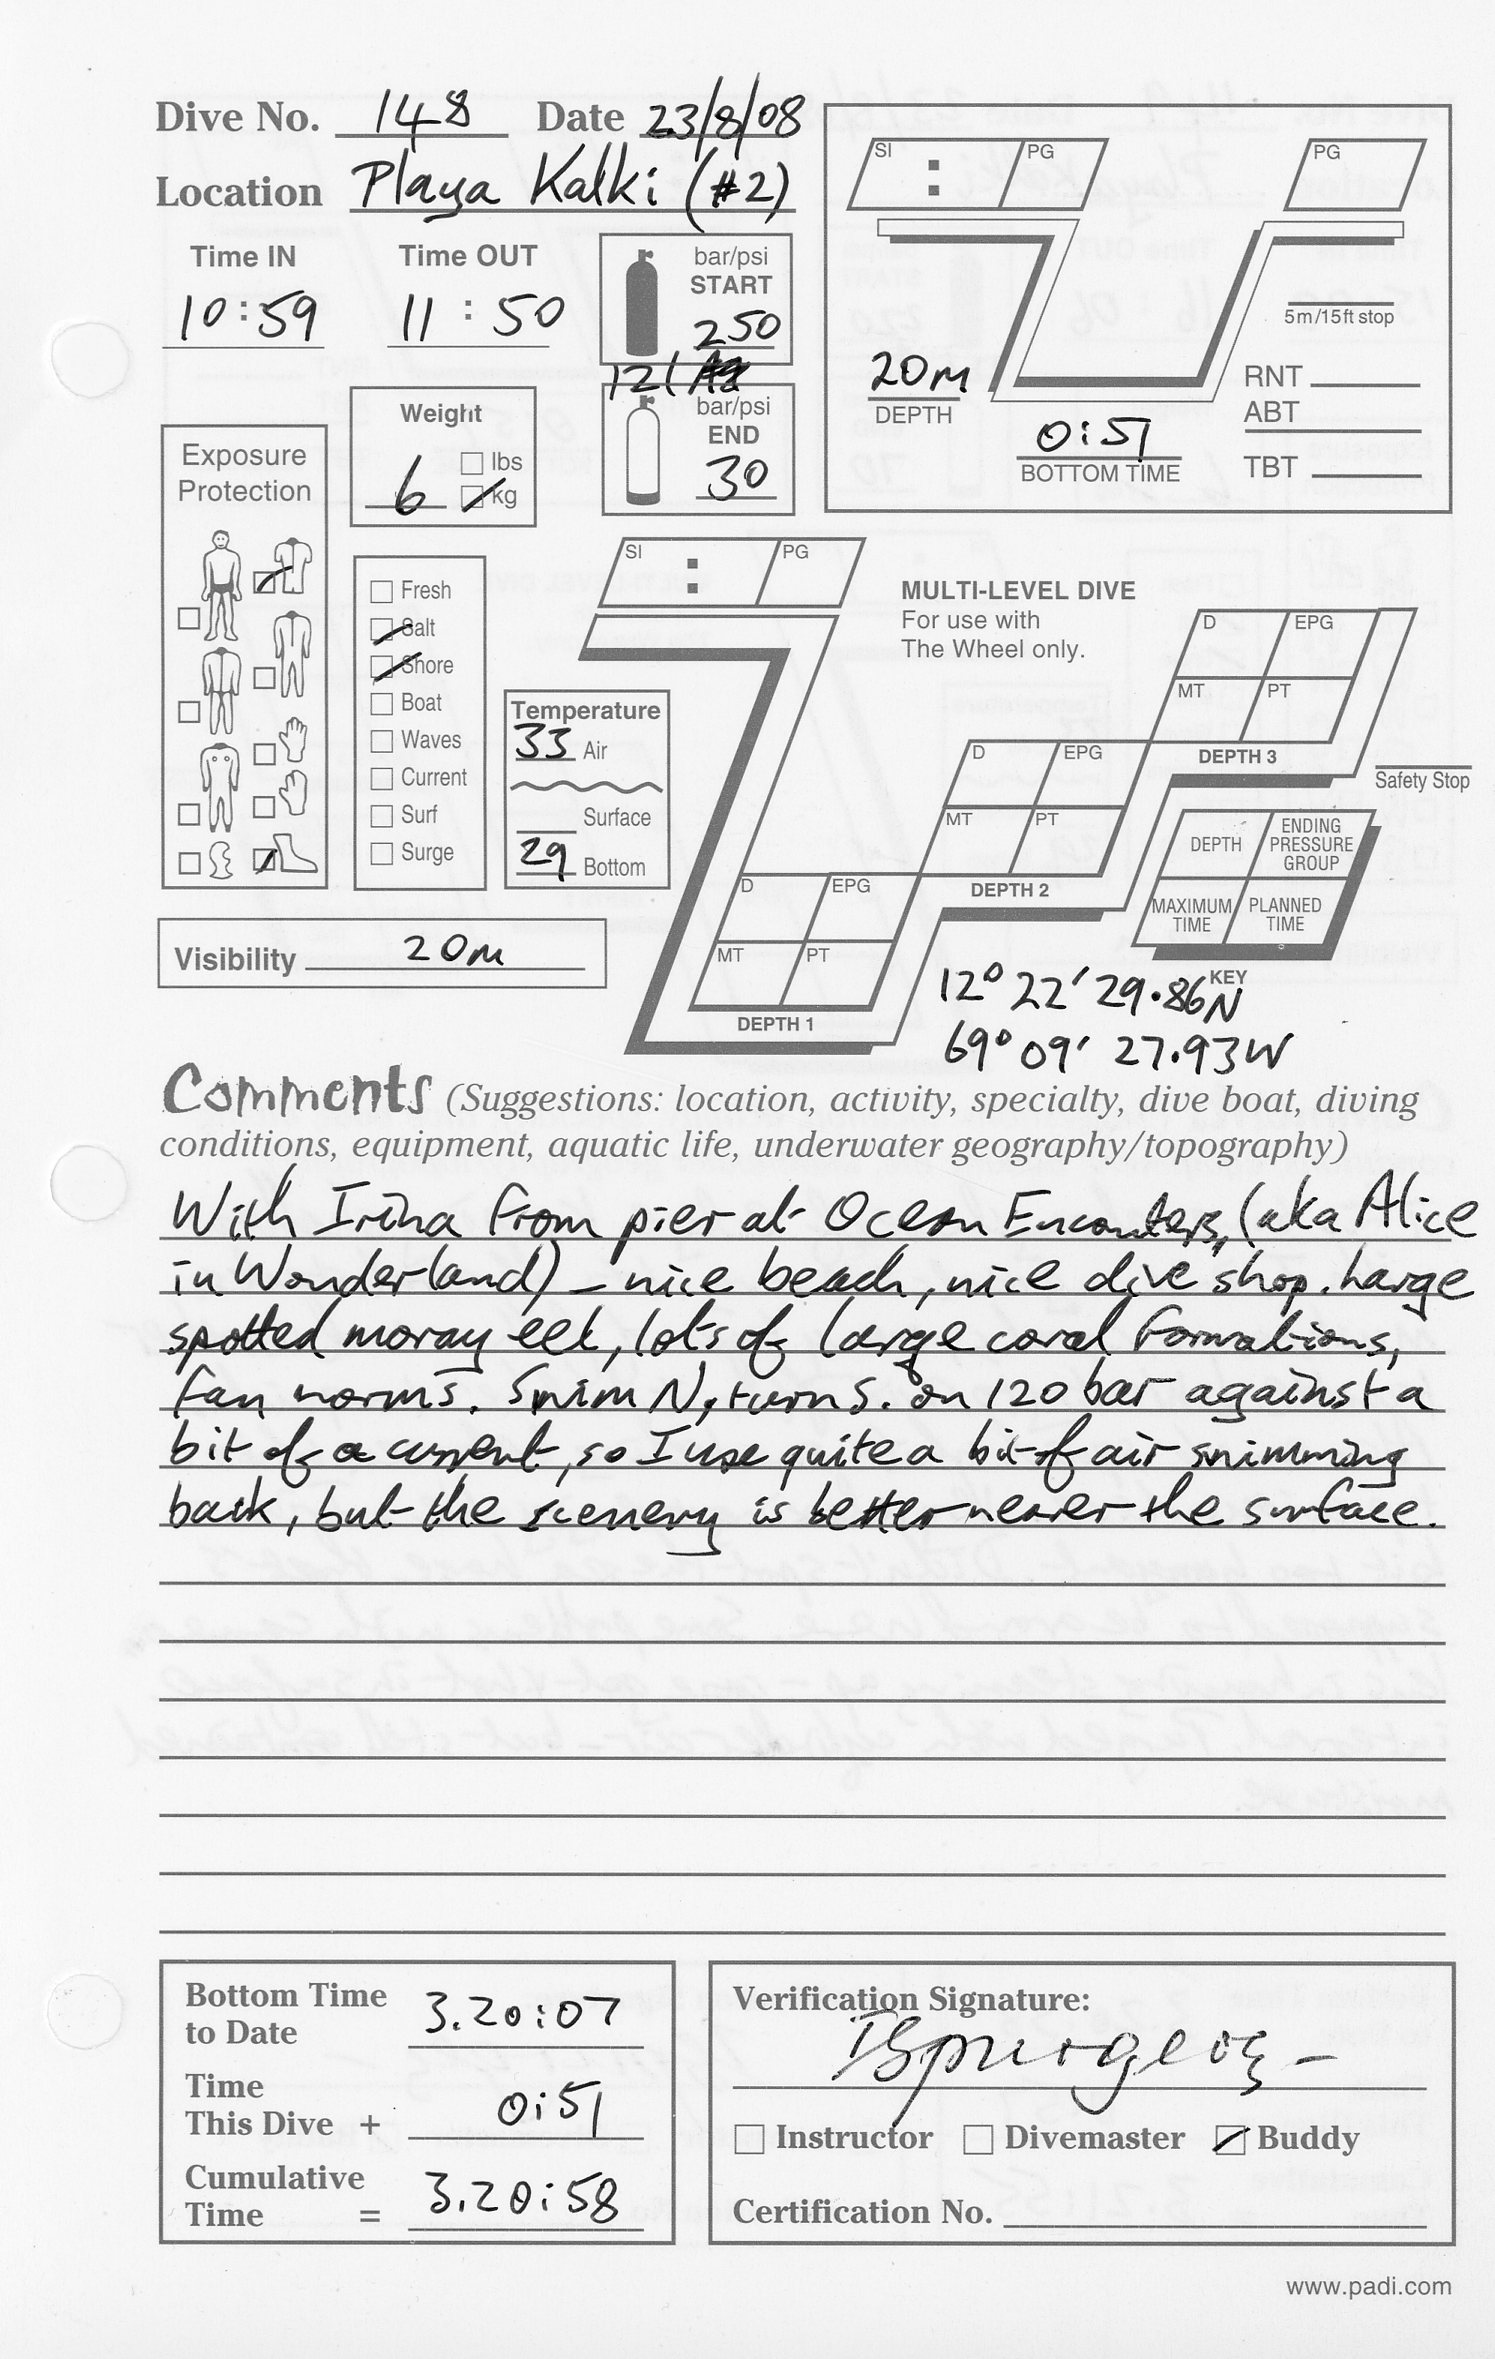 Dive No. 148 Date 23/8/08
Location Playa Kalki (#2)
Time IN Time OUT
10:59 11:50
bar/psi
START
250
12l
bar/psi
END
30
SI : PG PG
5m/15ft stop
20m
DEPTH
0:51
BOTTOM TIME
RNT
ABT
TBT
Weight
6 lbs
kg
Exposure
Protection
Fresh
Salt
Shore
Boat
Waves
Current
Surf
Surge
Temperature
33 Air
Surface
29 Bottom
Visibility 20m
SI : PG
MULTI-LEVEL DIVE
For use with
The Wheel only.
D EPG
MT PT
DEPTH 3
Safety Stop
D EPG
MT PT
DEPTH 2
D EPG
MT PT
DEPTH 1
DEPTH ENDING PRESSURE GROUP
MAXIMUM TIME PLANNED TIME
KEY
12° 22' 29.86N
69° 09' 27.93W
Comments (Suggestions: location, activity, specialty, dive boat, diving
conditions, equipment, aquatic life, underwater geography/topography)
With Irina from pier at Ocean Encounters, (aka Alice
in Wonderland) – nice beach, nice dive shop. Large
spotted moray eel, lots of large coral formations,
fan worms. Swim N, turn S. on 120 bar against a
bit of a current, so I use quite a bit of air swimming
back, but the scenery is better nearer the surface.
Bottom Time
to Date 3.20:07
Time
This Dive + 0:51
Cumulative
Time = 3.20:58
Verification Signature:
Instructor Divemaster Buddy
Certification No.
www.padi.com